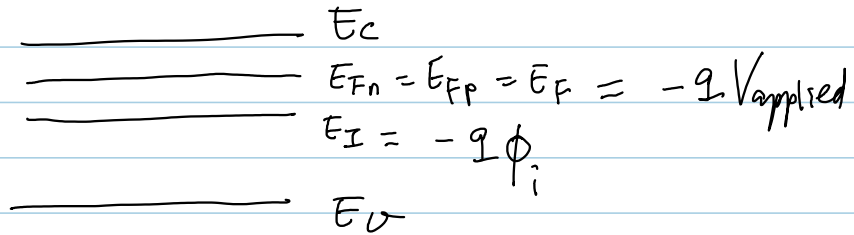 Ec
E_Fn = E_Fp = E_F = -q V_applied
E_I = -q ϕ_i
Ev